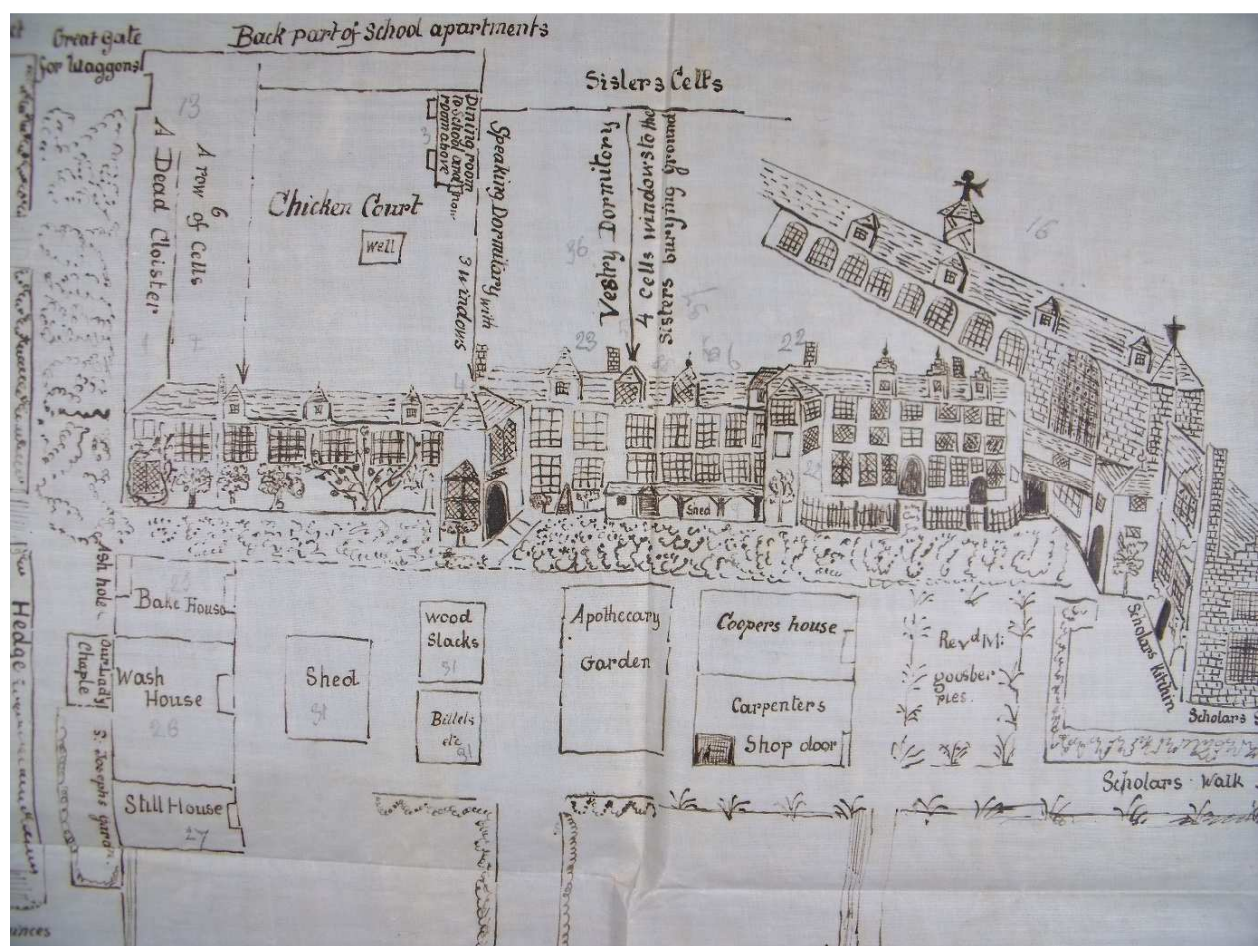 Great gate
for Waggons
Back part of School apartments
Sisters Cells
13
A Dead Cloister
A row of Cells
6
Chicken Court
Well
3
Dining room
to School and
room above
Speaking Dormitory with
3 Windows
Vestry Dormitory
36
4 Cells windows to the
Sisters burying ground
16
23
22
Shed
Ash hole
Bake House
Our Lady
Chaple
Wash
House
26
S. Josephs
Still House
27
Hedge
Shed
31
Wood
Stacks
31
Billets
etc
31
Apothecary
Garden
Coopers house
Carpenters
Shop door
Revd M:
goosber
ries.
Scholars Kitchin
Scholars
Scholars Walk